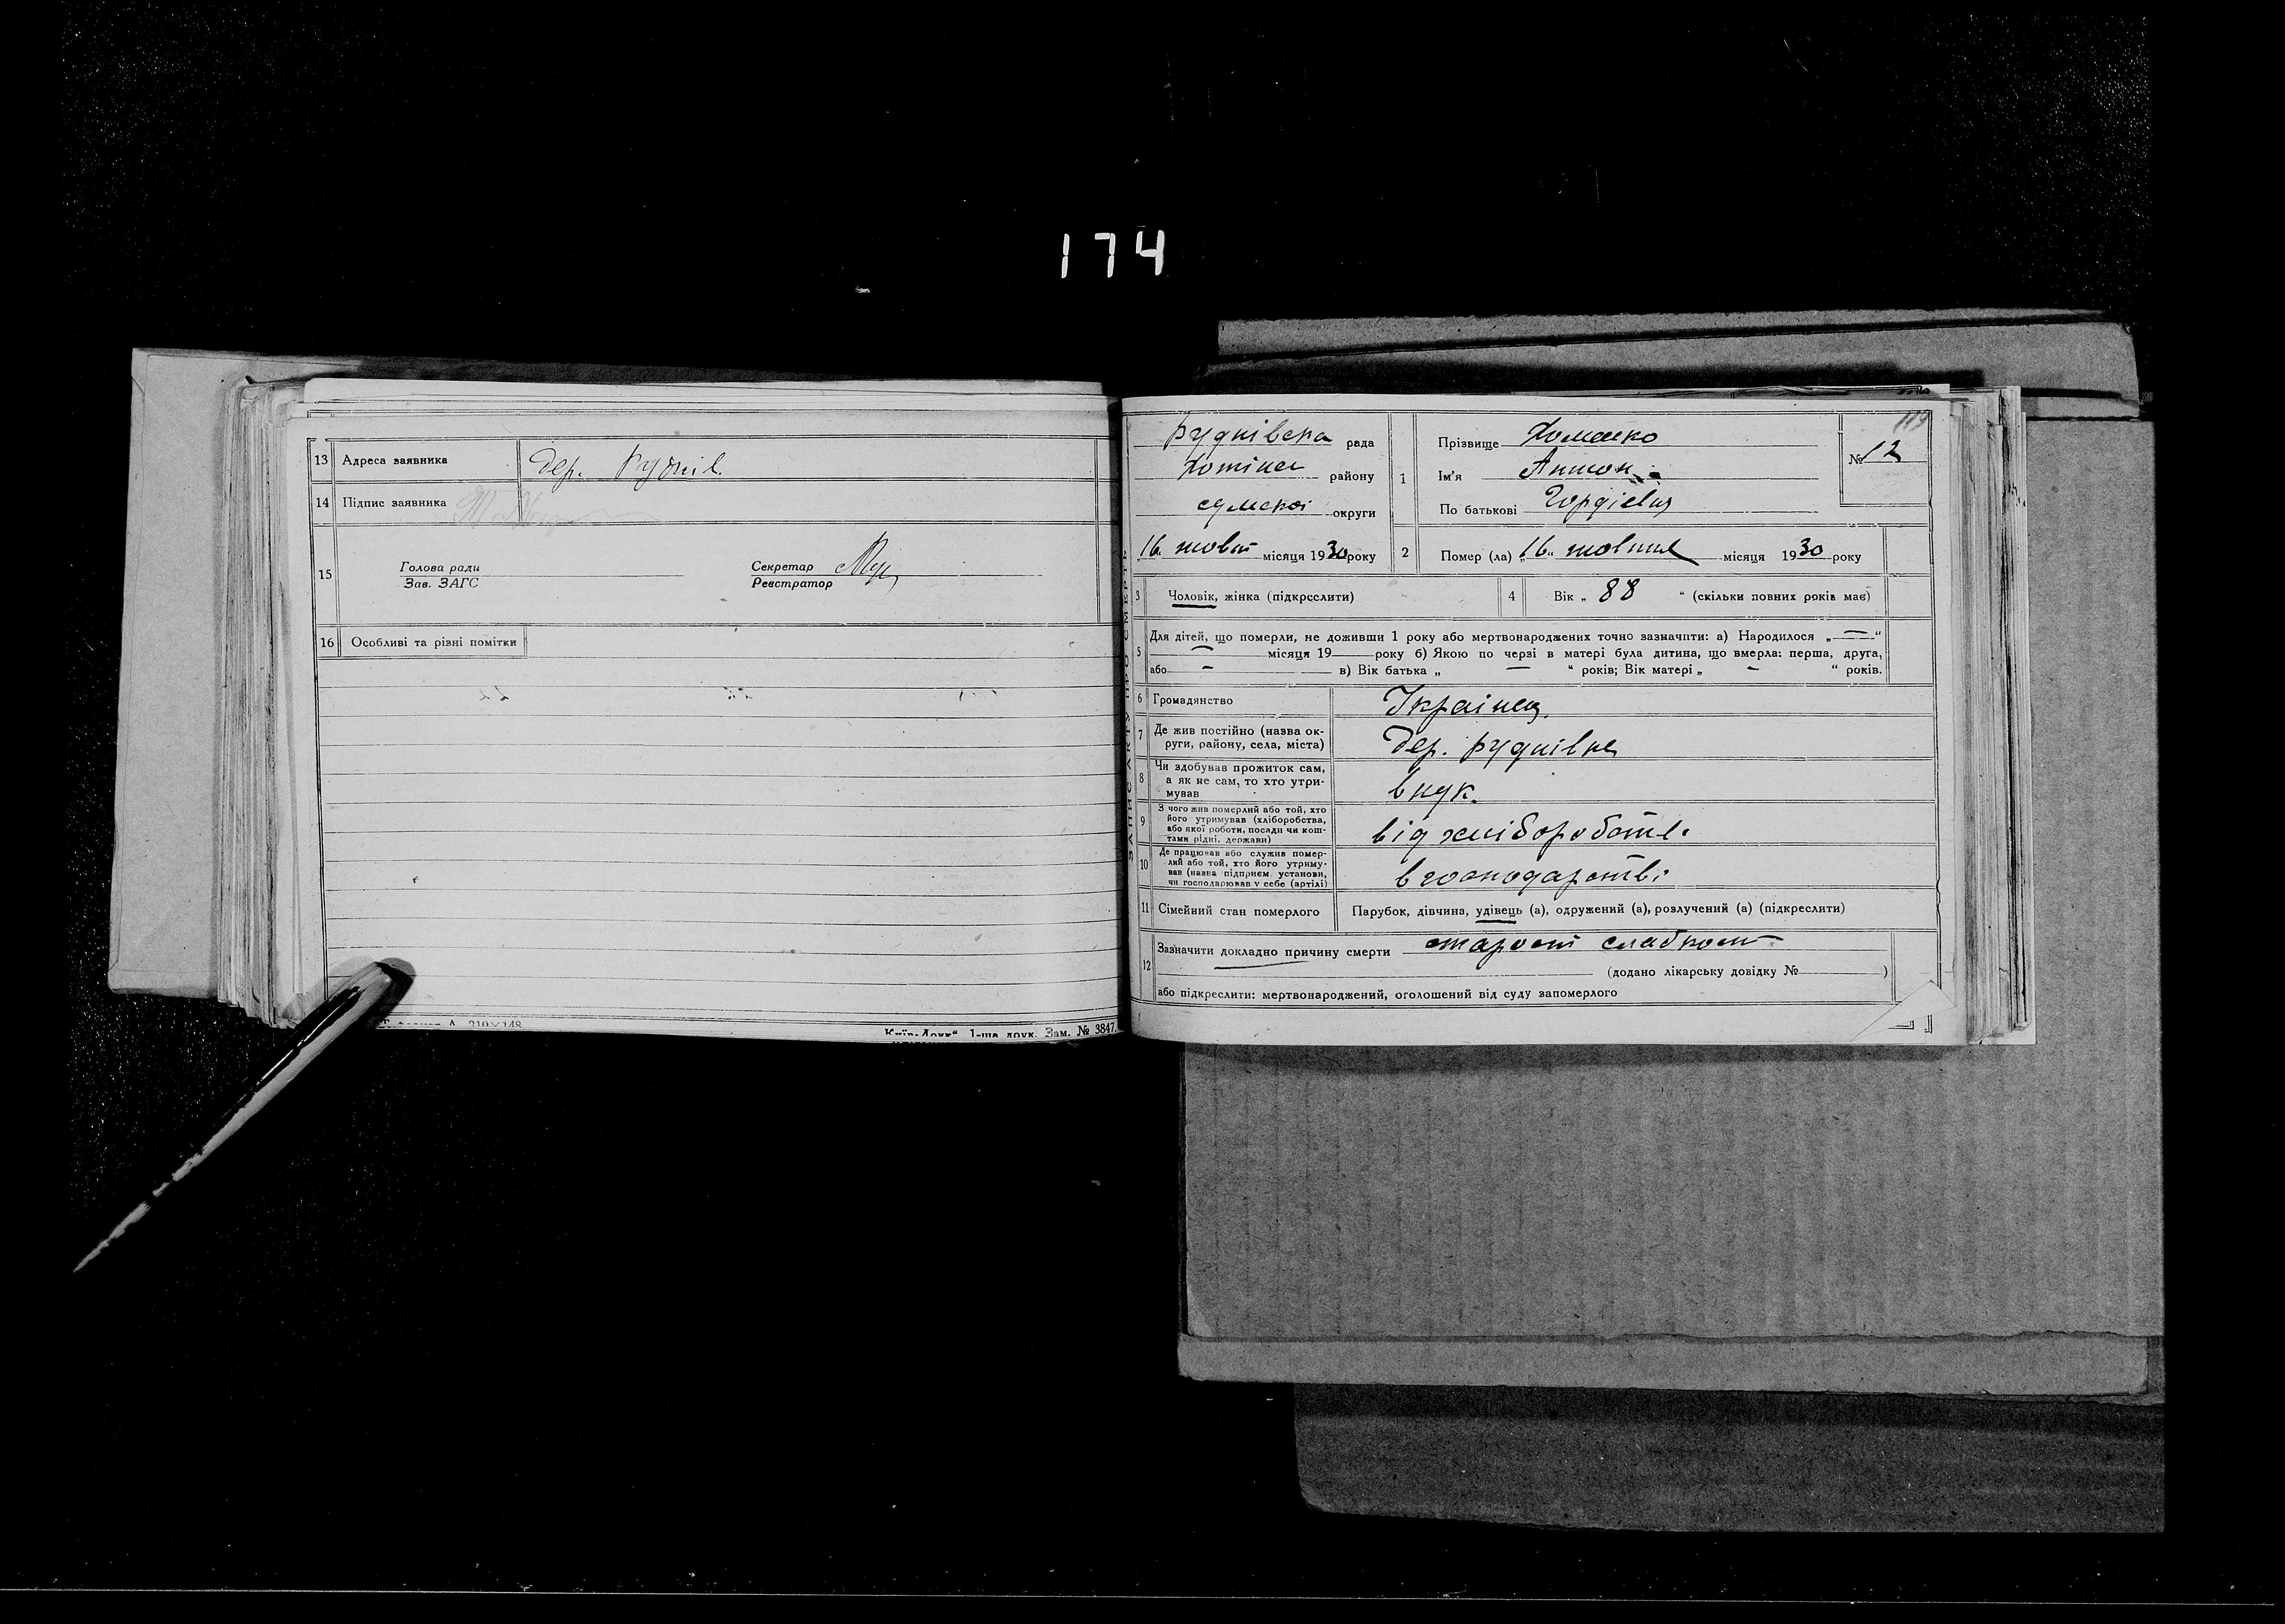 174
13 Адреса заявника дер. Руднів.
14 Підпис заявника
15 Голова ради Секретар
Зав. ЗАГС Реєстратор
16 Особливі та різні помітки
А 210×148
Київ-Друк“ 1-ша друк. Зам. № 3847.
ЗАПИС АКТУ ПРО СМЕРТЬ
119
Руднівска рада
Хотінск району
сумскої округи
16 жовт місяця 1930 року
1 Прізвище Хоменко
Ім'я Антон
По батькові Гордієвич
№ 12
2 Помер (ла) „16„ жовтня місяця 1930 року
3 Чоловік, жінка (підкреслити)
4 Вік „ 88 “ (скільки повних років має)
5 Для дітей, що померли, не доживши 1 року або мертвонароджених точно зазначити: а) Народилося „ — “
— місяця 19 — року б) Якою по черзі в матері була дитина, що вмерла: перша, друга,
або — в) Вік батька „ — “ років; Вік матері „ — “ років.
6 Громадянство Українец
7 Де жив постійно (назва ок-
руги, району, села, міста) дер. Руднівка
8 Чи здобував прожиток сам,
а як не сам, то хто утри-
мував внук.
9 З чого жив померлий або той, хто
його утримував (хліборобства,
або якої роботи, посади чи кош-
тами рідні, держави) від хліборобств.
10 Де працював або служив помер-
лий або той, хто його утриму-
вав (назва підприєм. установи,
чи господарював у себе (артілі) в господарстві
11 Сімейний стан померлого Парубок, дівчина, удівець (а), одружений (а), розлучений (а) (підкреслити)
12 Зазначити докладно причину смерти старост слабкост
(додано лікарську довідку № )
або підкреслити: мертвонароджений, оголошений від суду запомерлого